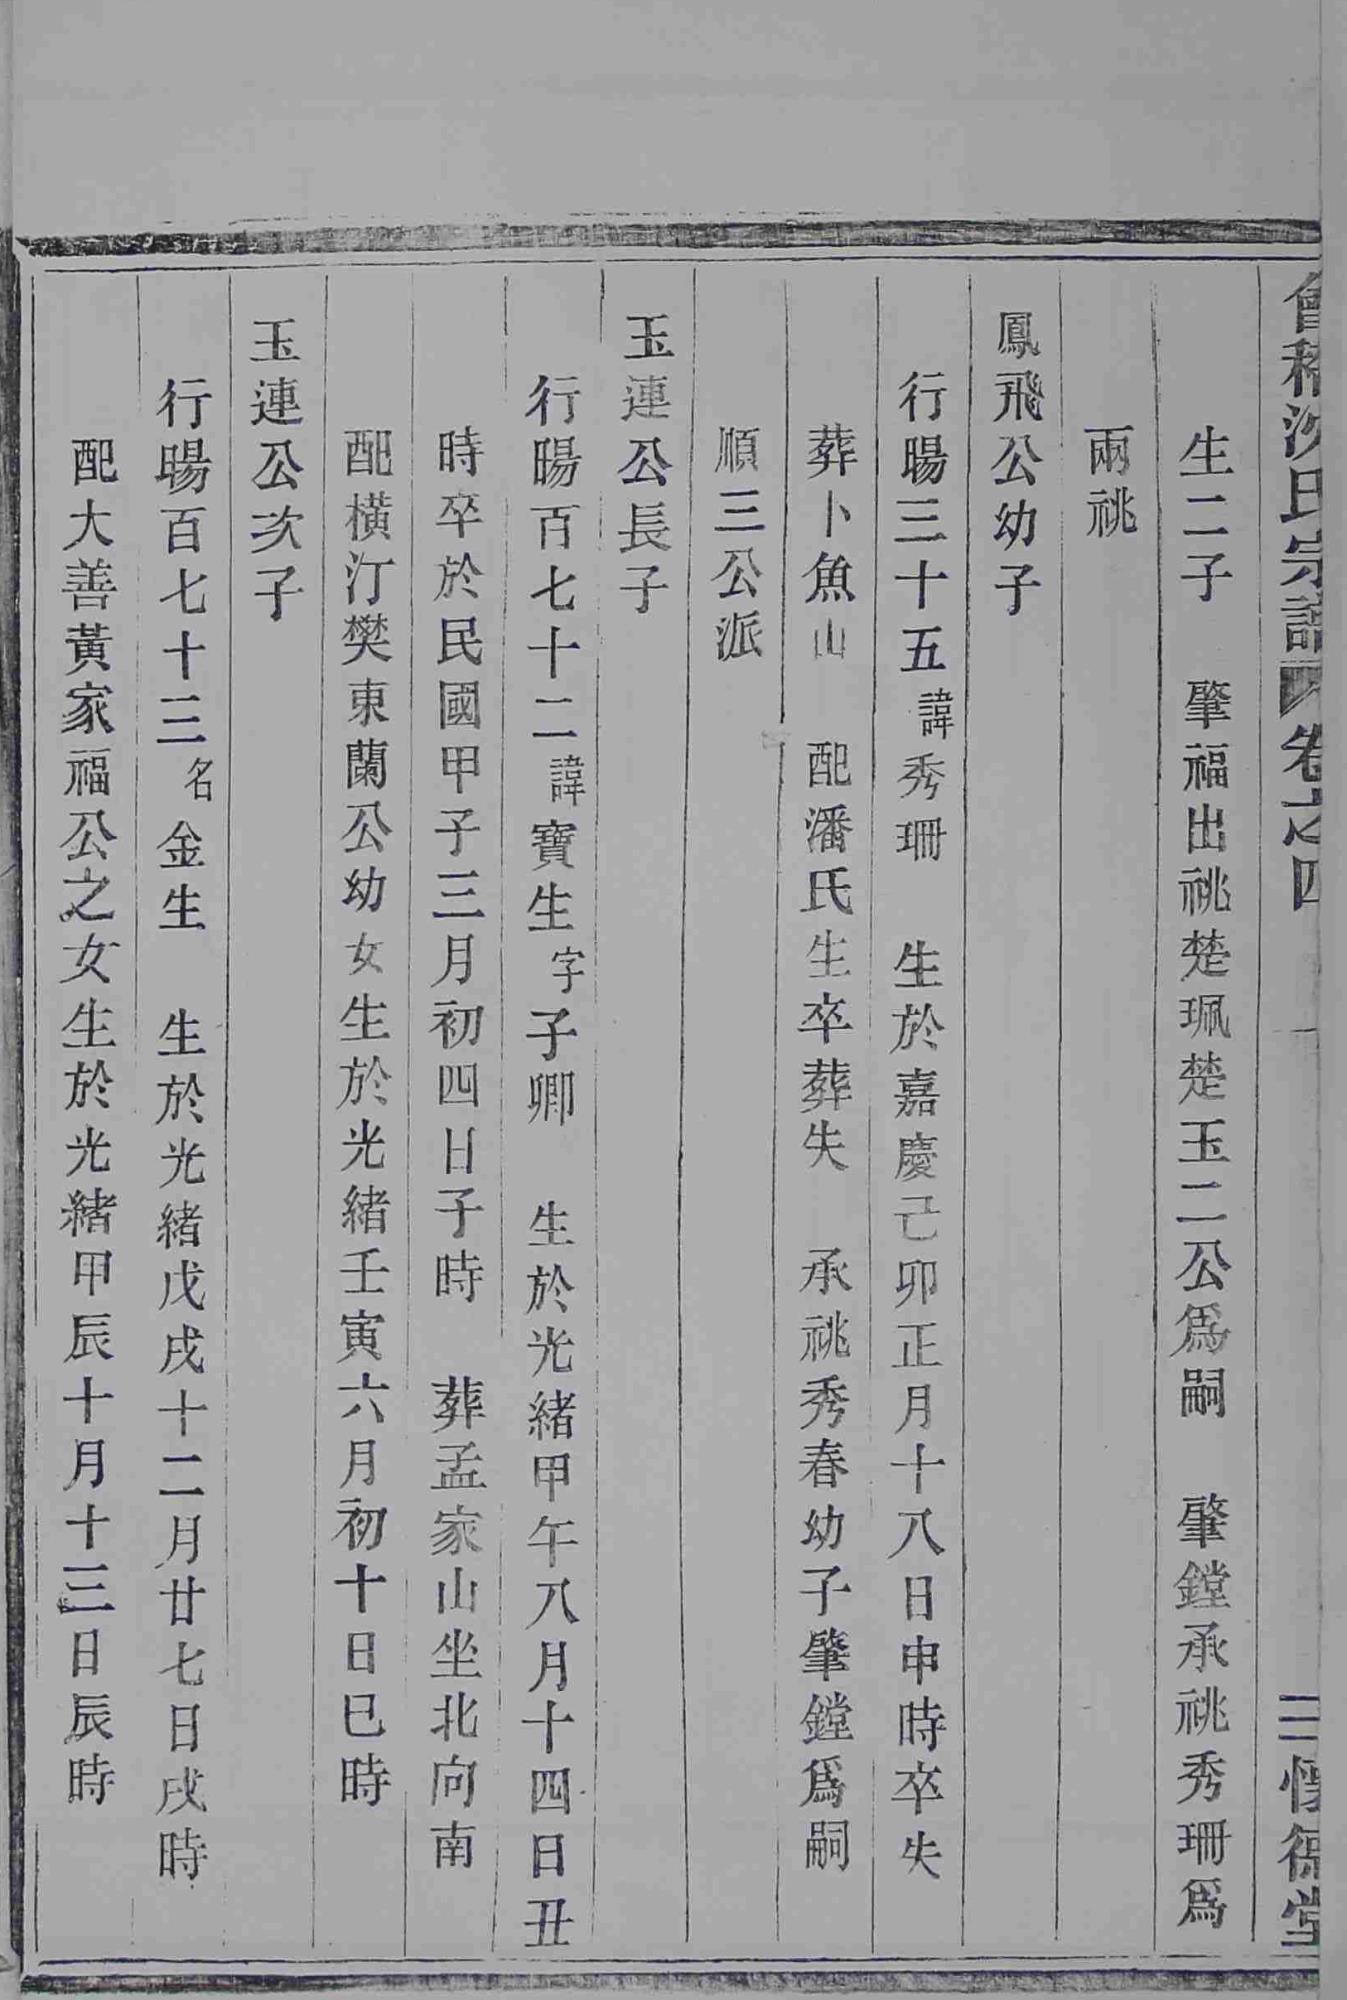 會稽沈氏宗譜 卷之四 二 懷德堂
生二子 肇福出祧楚珮楚玉二公爲嗣 肇鏜承祧秀珊爲
兩祧
鳳飛公幼子
行暘三十五諱秀珊 生於嘉慶己卯正月十八日申時卒失
葬卜魚山 配潘氏生卒葬失 承祧秀春幼子肇鏜爲嗣
順三公派
玉連公長子
行暘百七十二諱寶生字子卿 生於光緒甲午八月十四日丑
時卒於民國甲子三月初四日子時 葬孟家山坐北向南
配橫汀樊東蘭公幼女生於光緒壬寅六月初十日巳時
玉連公次子
行暘百七十三名金生 生於光緒戊戌十二月廿七日戌時
配大善黃家福公之女生於光緒甲辰十月十三日辰時